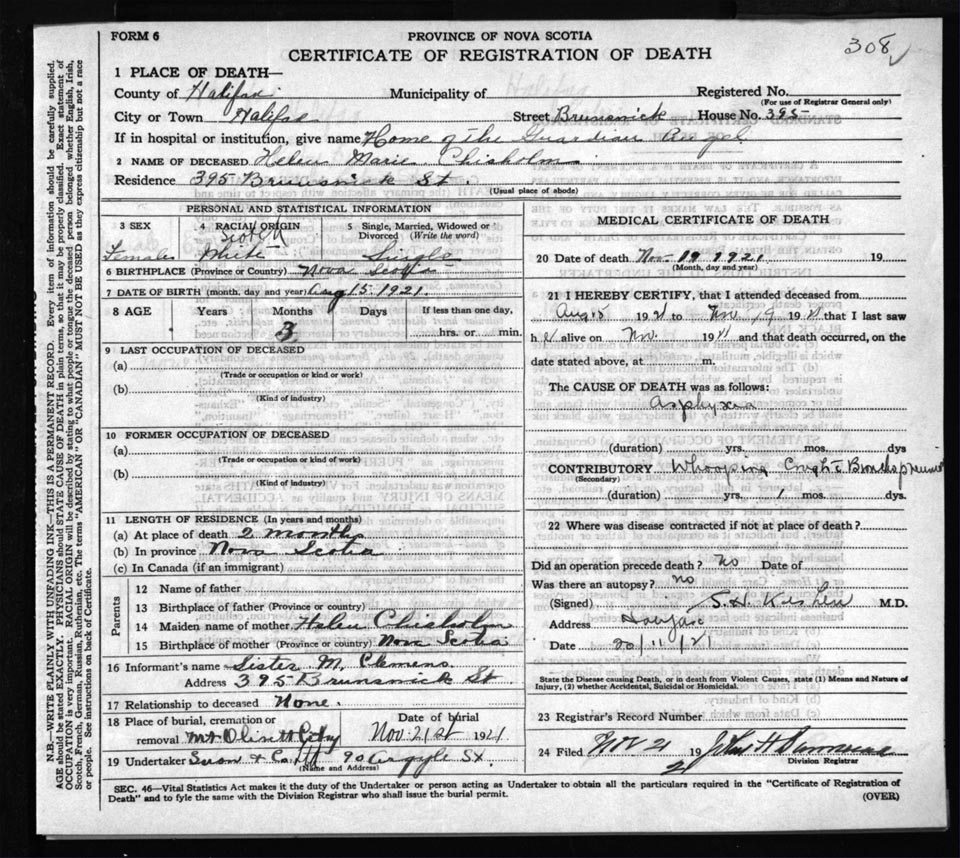 FORM 6
PROVINCE OF NOVA SCOTIA
308
CERTIFICATE OF REGISTRATION OF DEATH
1 PLACE OF DEATH—
County of Halifax Municipality of Registered No.
(For use of Registrar General only)
City or Town Halifax Street Brunswick House No. 395
If in hospital or institution, give name Home of the Guardian Angel
2 NAME OF DECEASED Helen Marie Chisholm
Residence 395 Brunswick St.
(Usual place of abode)
PERSONAL AND STATISTICAL INFORMATION
3 SEX 4 RACIAL ORIGIN 5 Single, Married, Widowed or Divorced (Write the word)
Scotch
Female White Single
6 BIRTHPLACE (Province or Country) Nova Scotia
7 DATE OF BIRTH (month, day and year) Aug 15. 1921.
8 AGE Years Months Days If less than one day,
3 hrs. or min.
9 LAST OCCUPATION OF DECEASED
(a)
(Trade or occupation or kind or work)
(b)
(Kind of industry)
10 FORMER OCCUPATION OF DECEASED
(a)
(Trade or occupation or kind of work)
(b)
(Kind of industry)
11 LENGTH OF RESIDENCE (In years and months)
(a) At place of death 2 months
(b) In province Nova Scotia
(c) In Canada (if an immigrant)
Parents
12 Name of father
13 Birthplace of father (Province or country)
14 Maiden name of mother Helen Chisholm
15 Birthplace of mother (Province or country) Nova Scotia
16 Informant's name Sister M. Clemens
Address 395 Brunswick St
17 Relationship to deceased None.
18 Place of burial, cremation or removal Mt Olivet Cety Date of burial Nov 21st 1921
19 Undertaker Snow & Co 90 Argyle St.
(Name and Address)
MEDICAL CERTIFICATE OF DEATH
20 Date of death Nov 19 1921 19
(Month, day and year)
21 I HEREBY CERTIFY, that I attended deceased from
Aug 15 1921 to Nov. 19 1921 that I last saw
h er alive on Nov. 1921 and that death occurred, on the
date stated above, at m.
The CAUSE OF DEATH was as follows:
Asphyxia
(duration) yrs. mos. dys
CONTRIBUTORY Whooping Cough
(Secondary)
(duration) yrs. 1 mos. dys.
22 Where was disease contracted if not at place of death?
Did an operation precede death? no Date of
Was there an autopsy? no
(Signed) M.D.
Address Halifax
Date 20/11/21
State the Disease causing Death, or in death from Violent Causes, state (1) Means and Nature of
Injury, (2) whether Accidental, Suicidal or Homicidal.
23 Registrar's Record Number
24 Filed Nov 21 19 21 John H
Division Registrar
SEC. 46—Vital Statistics Act makes it the duty of the Undertaker or person acting as Undertaker to obtain all the particulars required in the "Certificate of Registration of
Death" and to fyle the same with the Division Registrar who shall issue the burial permit.
(OVER)
N.B.—WRITE PLAINLY WITH UNFADING INK—THIS IS A PERMANENT RECORD. Every item of information should be carefully supplied.
AGE should be stated EXACTLY. PHYSICIANS should STATE CAUSE OF DEATH in plain terms, so that it may be properly classified. Exact statement of
OCCUPATION is very important. RACIAL ORIGIN will be described by stating to what people or tongue the deceased person belonged whether English, Irish,
Scotch, French, German, Russian, Ruthenian, etc. The terms "AMERICAN" OR "CANADIAN" MUST NOT BE USED as they express citizenship but not a race
or people. See instructions on back of Certificate.